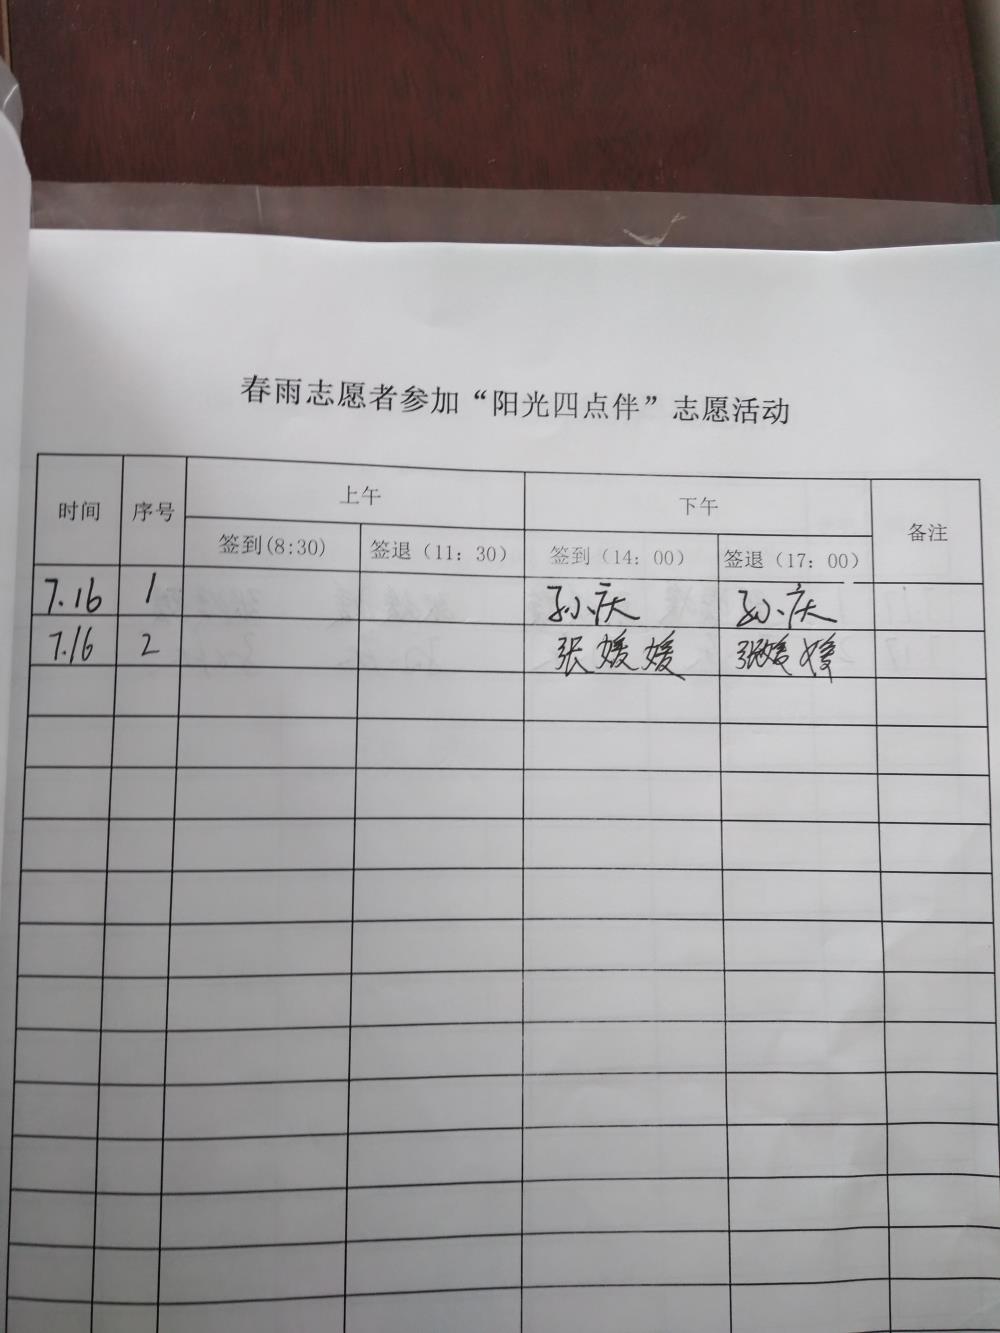 春雨志愿者参加“阳光四点伴”志愿活动
时间 序号 上午 下午 备注
签到(8:30) 签退（11：30） 签到（14：00） 签退（17：00）
7.16 1 孙庆 孙庆
7.16 2 张媛媛 张媛媛